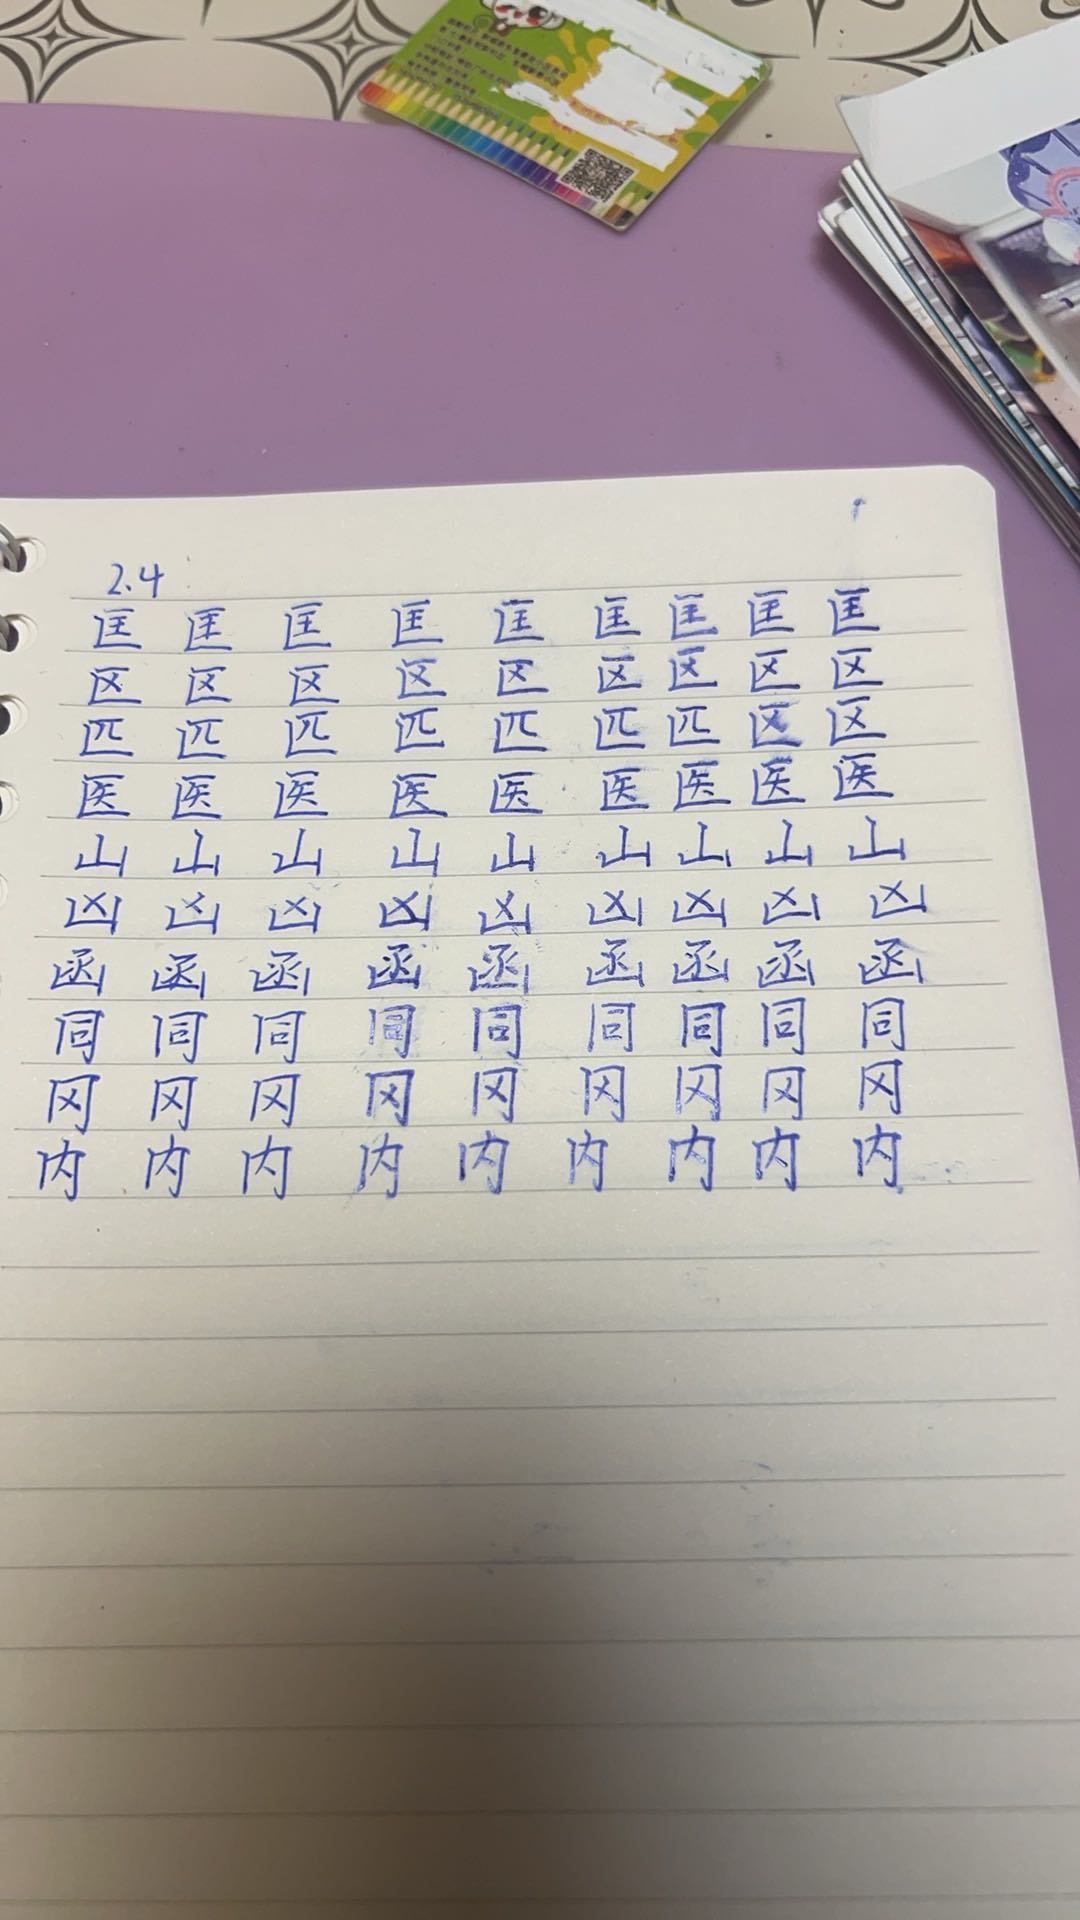 2.4
匡 匡 匡 匡 匡 匡 匡 匡 匡
区 区 区 区 区 区 区 区 区
匹 匹 匹 匹 匹 匹 匹 区 区
医 医 医 医 医 医 医 医 医
山 山 山 山 山 山 山 山 山
凶 凶 凶 凶 凶 凶 凶 凶 凶
函 函 函 函 函 函 函 函 函
同 同 同 同 同 同 同 同 同
冈 冈 冈 冈 冈 冈 冈 冈 冈
内 内 内 内 内 内 内 内 内